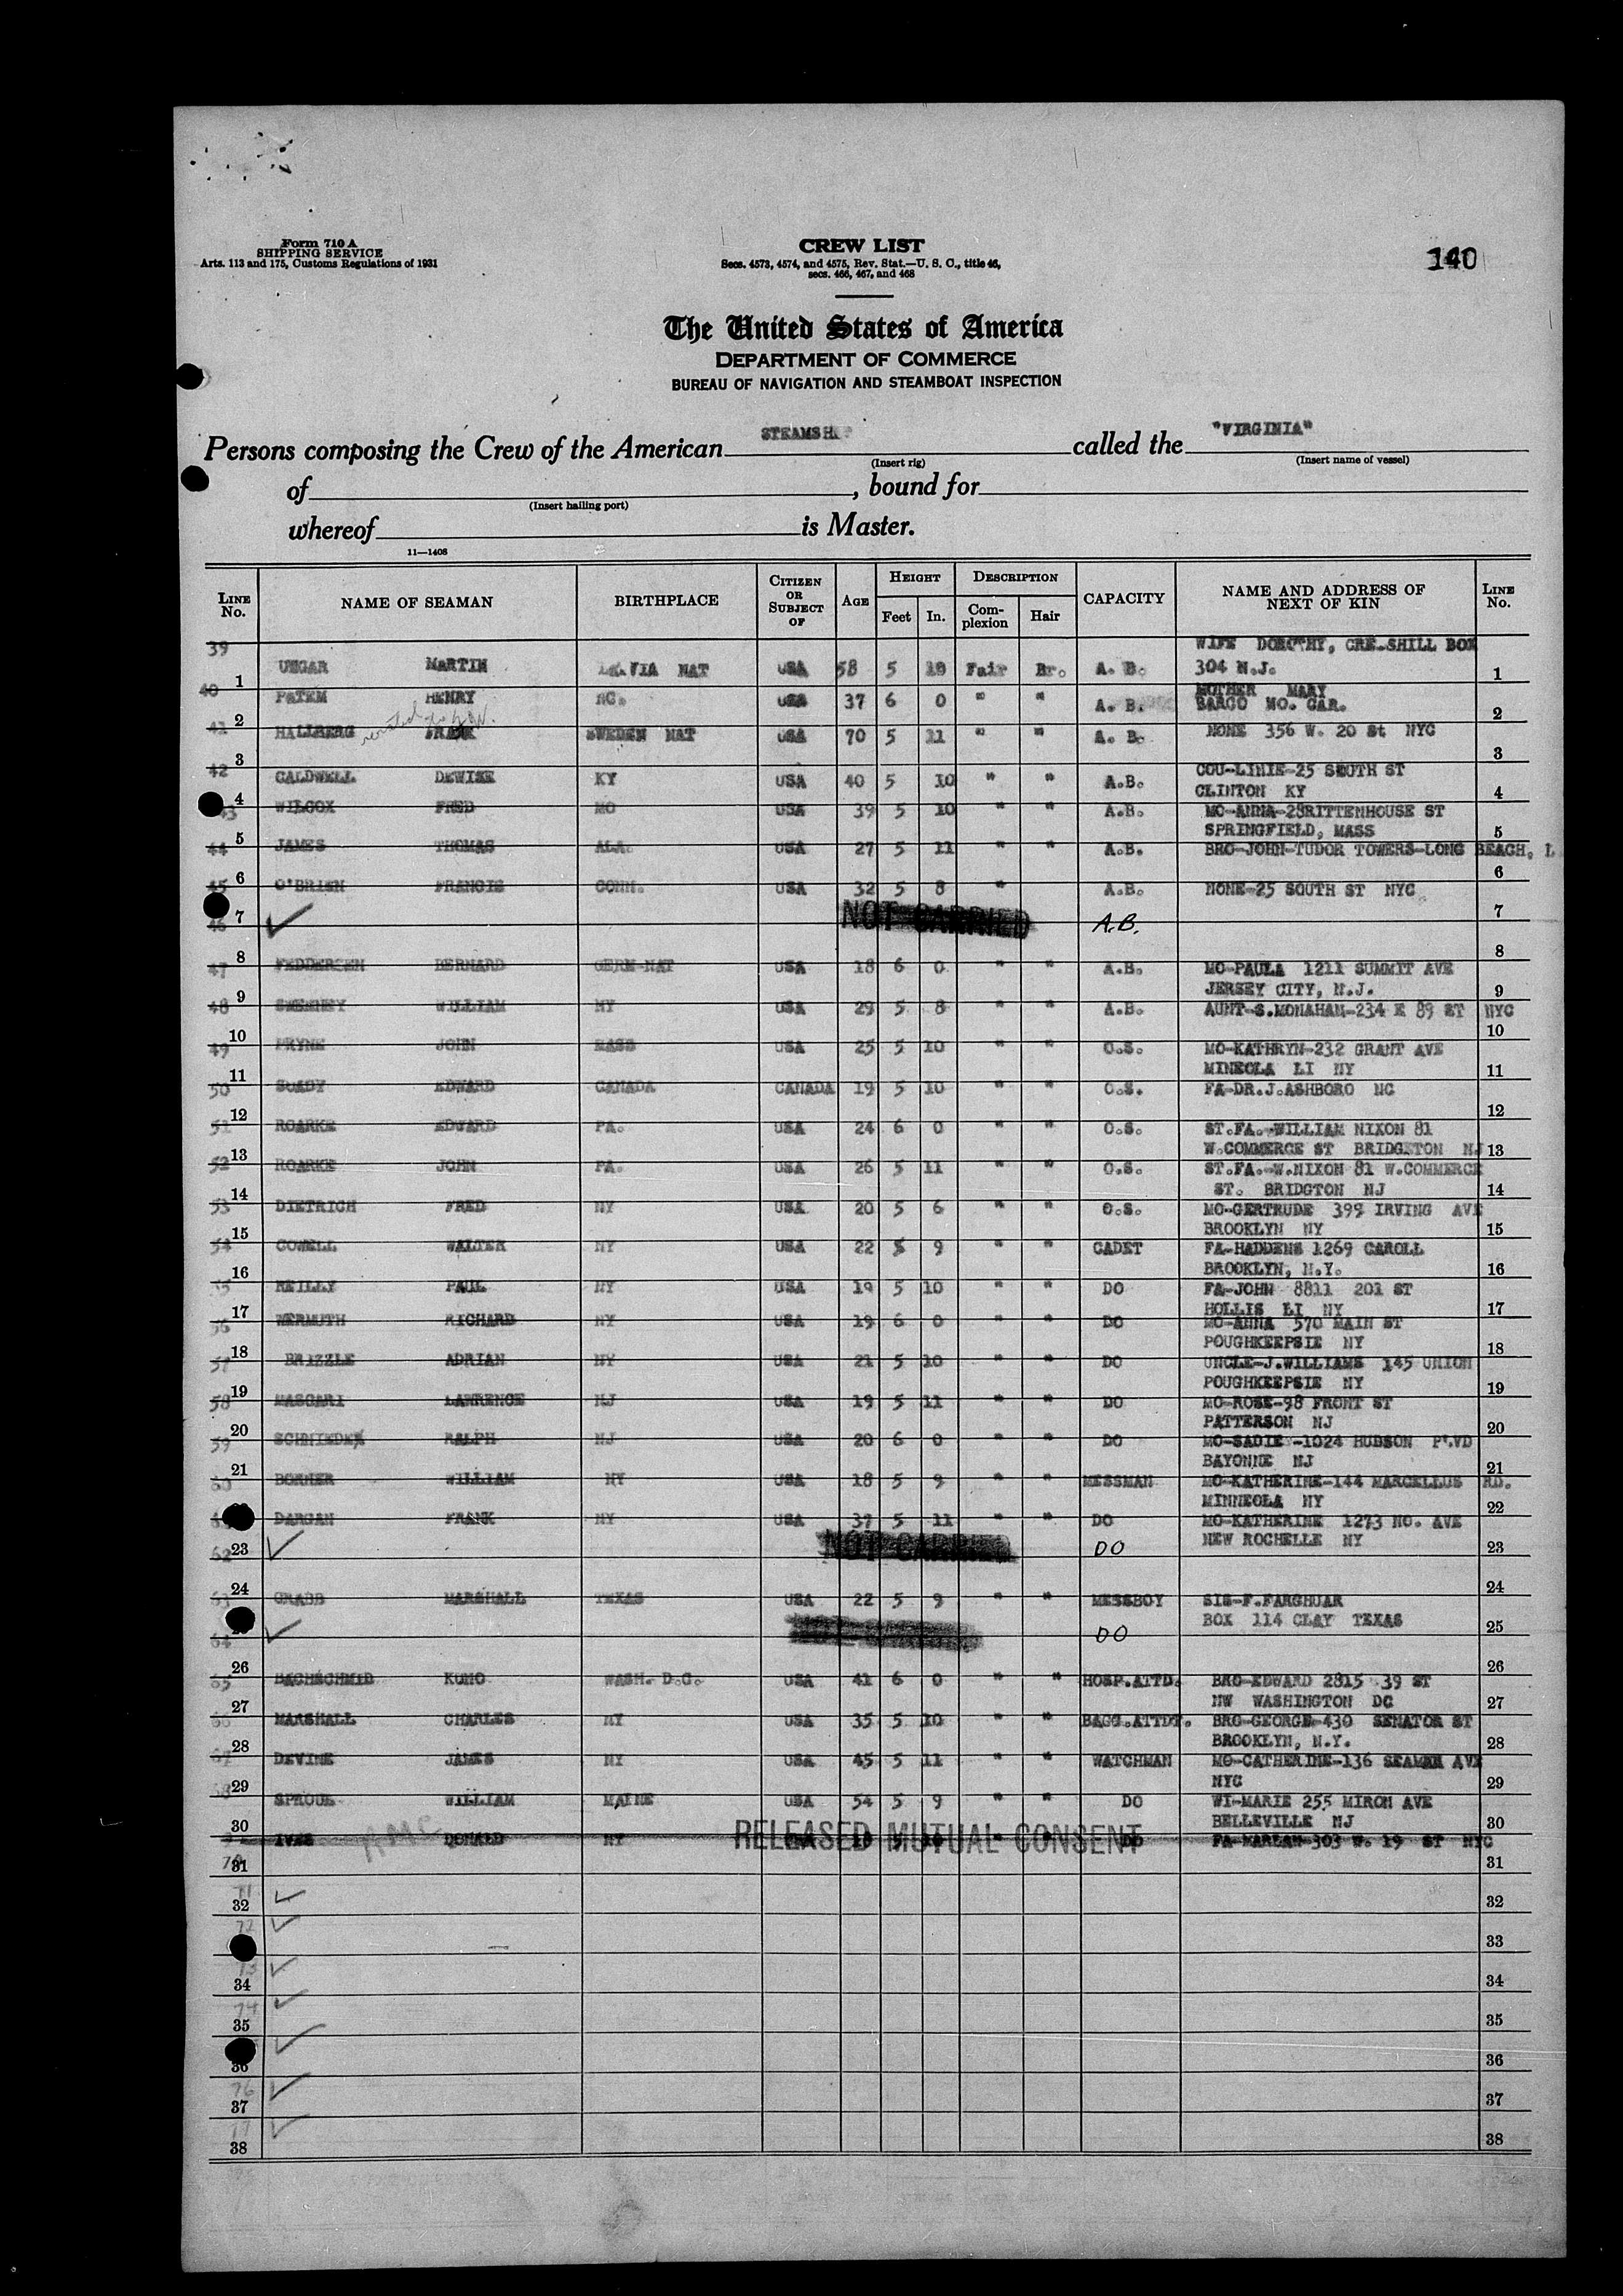 Form 710 A
SHIPPING SERVICE
Arts. 113 and 175, Customs Regulations of 1931
CREW LIST
Secs. 4573, 4574, and 4575, Rev. Stat.—U. S. C., title 46,
secs. 466, 467, and 468
140
The United States of America
DEPARTMENT OF COMMERCE
BUREAU OF NAVIGATION AND STEAMBOAT INSPECTION
Persons composing the Crew of the American STEAMSHIP called the "VIRGINIA"
(Insert rig) (Insert name of vessel)
of , bound for
(Insert hailing port)
whereof is Master.
11—1408
LINE No. NAME OF SEAMAN BIRTHPLACE CITIZEN OR SUBJECT OF AGE HEIGHT Feet In. DESCRIPTION Complexion Hair CAPACITY NAME AND ADDRESS OF NEXT OF KIN LINE No.
39 WIFE DOROTHY, CRE.SHILL BOX
1 UNGAR MARTIN NAT USA 58 5 10 Fair Br. A. B. 304 N.J. 1
40 MOTHER MARY
2 PATEM HENRY NC. USA 37 6 0 " " A. B. BARCO NO. CAR. 2
41 3 HALLBERG FRANK SWEDEN NAT USA 70 5 11 " " A. B. NONE 356 W. 20 St NYC 3
42 CALDWELL DEWISE KY USA 40 5 10 " " A.B. COU-LINIE-25 SOUTH ST
4 CLINTON KY 4
43 WILCOX FRED MO USA 39 5 10 " " A.B. MO-ANNA-28RITTENHOUSE ST
5 SPRINGFIELD, MASS 5
44 JAMES THOMAS ALA. USA 27 5 11 " " A.B. BRO-JOHN-TUDOR TOWERS-LONG BEACH, L
6 6
45 O'BRIEN FRANCIS CONN. USA 32 5 8 " A.B. NONE-25 SOUTH ST NYC
46 7 NOT CARRIED A.B. 7
8 8
47 FEDDERSEN BERNARD GERM-NAT USA 18 6 0 " " A.B. MO-PAULA 1211 SUMMIT AVE
9 JERSEY CITY, N.J. 9
48 SWEENEY WILLIAM NY USA 29 5 8 " " A.B. AUNT-S.MONAHAN-234 E 89 ST NYC
10 10
49 PRYNE JOHN MASS USA 25 5 10 " " O.S. MO-KATHRYN-232 GRANT AVE
11 MINEOLA LI NY 11
50 SOADY EDWARD CANADA CANADA 19 5 10 " " O.S. FA-DR.J.ASHBORO NC
12 12
51 ROARKE EDWARD PA. USA 24 6 0 " " O.S. ST.FA.-WILLIAM NIXON 81
13 W.COMMERCE ST BRIDGETON NJ 13
52 ROARKE JOHN PA. USA 26 5 11 " " O.S. ST.FA.-W.NIXON 81 W.COMMERCE
14 ST. BRIDGTON NJ 14
53 DIETRICH FRED NY USA 20 5 6 " " O.S. MO-GERTRUDE 399 IRVING AVE
15 BROOKLYN NY 15
54 COWELL WALTER NY USA 22 5 9 " " CADET FA-HADDENS 1269 CAROLL
16 BROOKLYN, N.Y. 16
55 REILLY PAUL NY USA 19 5 10 " " DO FA-JOHN 8811 201 ST
17 HOLLIS LI NY 17
56 WERMUTH RICHARD NY USA 19 6 0 " " DO MO-ANNA 570 MAIN ST
18 POUGHKEEPSIE NY 18
57 BRIZZLE ADRIAN NY USA 21 5 10 " " DO UNCLE-J.WILLIAMS 145 UNION
19 POUGHKEEPSIE NY 19
58 MASCARI LAWRENCE NJ USA 19 5 11 " " DO MO-ROSE-98 FRONT ST
20 PATTERSON NJ 20
59 SCHMIEDEX RALPH NJ USA 20 6 0 " " DO MO-SADIE -1024 HUDSON
21 BAYONNE NJ 21
60 BORNER WILLIAM NY USA 18 5 9 " " MESSMAN MO-KATHERINE-144 MARCELLUS RD.
MINNEOLA NY 22
DARGAN FRANK NY USA 37 5 11 " " DO MO-KATHERINE 1273 NO. AVE
62 23 NOT CARRIED DO NEW ROCHELLE NY 23
24 24
63 GRABB MARSHALL TEXAS USA 22 5 9 " " MESSBOY SIS-F.FARGHUAR
64 DO BOX 114 CLAY TEXAS 25
26 26
65 BACHSCHMID KUNO WASH. D.C. USA 41 6 0 " " HOSP.ATTD. BRO-EDWARD 2815 39 ST
27 NW WASHINGTON DC 27
66 MARSHALL CHARLES NY USA 35 5 10 " " BAGG.ATTDT. BRO-GEORGE-430 SENATOR ST
28 BROOKLYN, N.Y. 28
67 DEVINE JAMES NY USA 45 5 11 " " WATCHMAN MO-CATHERINE-136 SEAMAN AVE
29 NYC 29
68 SPROUL WILLIAM MAINE USA 54 5 9 " " DO WI-MARIE 255 MIRON AVE
30 BELLEVILLE NJ 30
IVES DONALD NY RELEASED MUTUAL CONSENT DO FA-HARLAN-303 W. 19 ST NYC
70 31 31
71 32 32
72 33
73 34 34
74 35 35
36 36
76 37 37
77 38 38